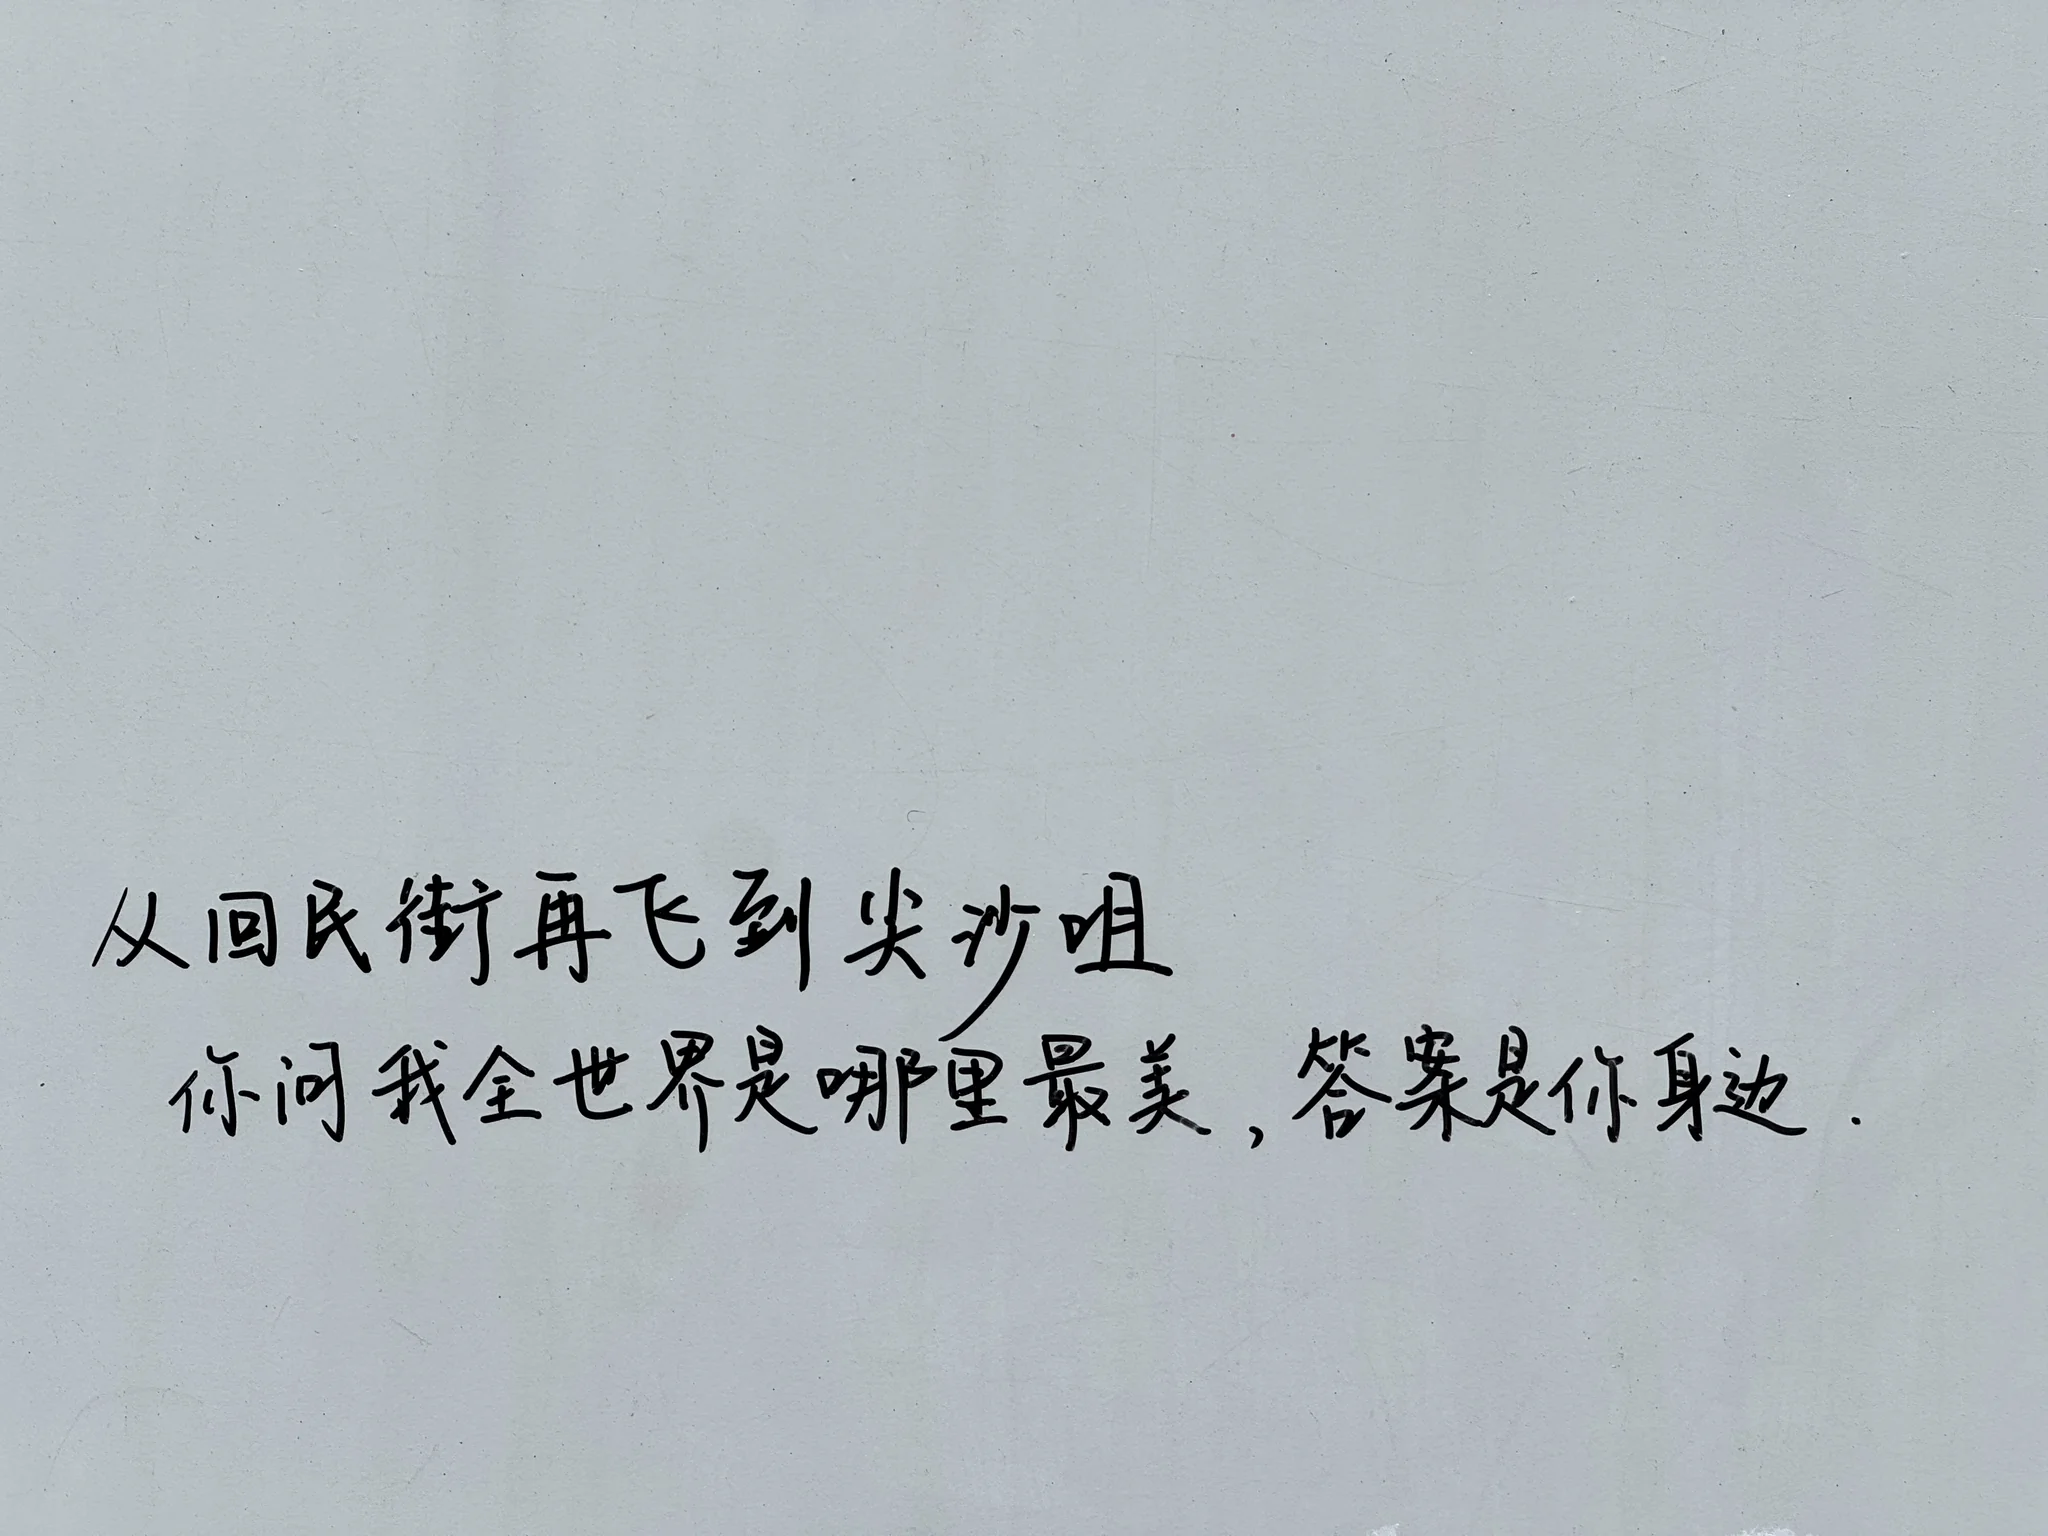 从回民街再飞到尖沙咀
你问我全世界是哪里最美,答案是你身边.